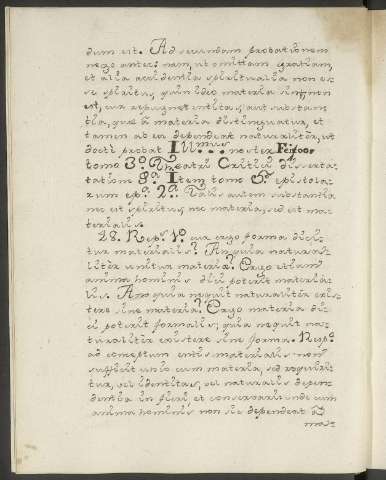 dum est. Ad secundam probationem
nego antec: nam, ut omittam gratiam,
et alia accidentia spiritualia non es-
se spiritus, quin ideo materia sint; non
est, cur repugnet entitas, aut substan-
tia, quæ à materia distinguatur, et
tamen ab ea dependeat naturaliter, ut
docté probat Ill.mus noster Feijoo
tomo 3.º Theatri Critici disserta-
tatione 8.ª Item tomo 5.º epistola-
rum ep.ª 2.ª Talis autem substantia
nec est spiritus, nec materia, sed est ma-
terialis.
28. Rep.s 1.º cur ergo forma dici-
tur materialis? An quia natural-
liter unitur materia? Ergo etiam
anima hominis dici poterit materia-
lis. An quia nequit naturaliter exis-
tere sine materia? Ergo materia di-
ci poterit formalis; quia nequit na-
turaliter existere sine forma. Resp.º
ad conceptum entis materialis non
sufficit unio cum materia, sed requiri-
tur, vel identitas, vel naturalis depen-
dentia in fieri et conservari: unde cum
anima hominis non sic dependeat à
ma-